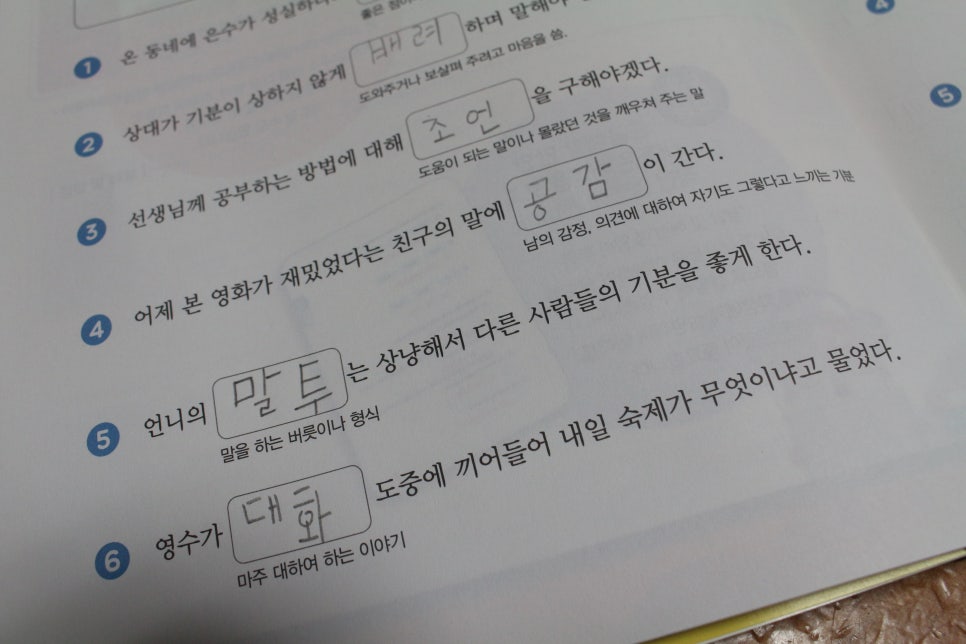 1 온 동네에 은수가
2 상대가 기분이 상하지 않게 배려 하며 말해야
도와주거나 보살펴 주려고 마음을 씀.
3 선생님께 공부하는 방법에 대해 조언 을 구해야겠다.
도움이 되는 말이나 몰랐던 것을 깨우쳐 주는 말
4 어제 본 영화가 재밌었다는 친구의 말에 공감 이 간다.
남의 감정, 의견에 대하여 자기도 그렇다고 느끼는 기분
5 언니의 말투 는 상냥해서 다른 사람들의 기분을 좋게 한다.
말을 하는 버릇이나 형식
6 영수가 대화 도중에 끼어들어 내일 숙제가 무엇이냐고 물었다.
마주 대하여 하는 이야기
4
5